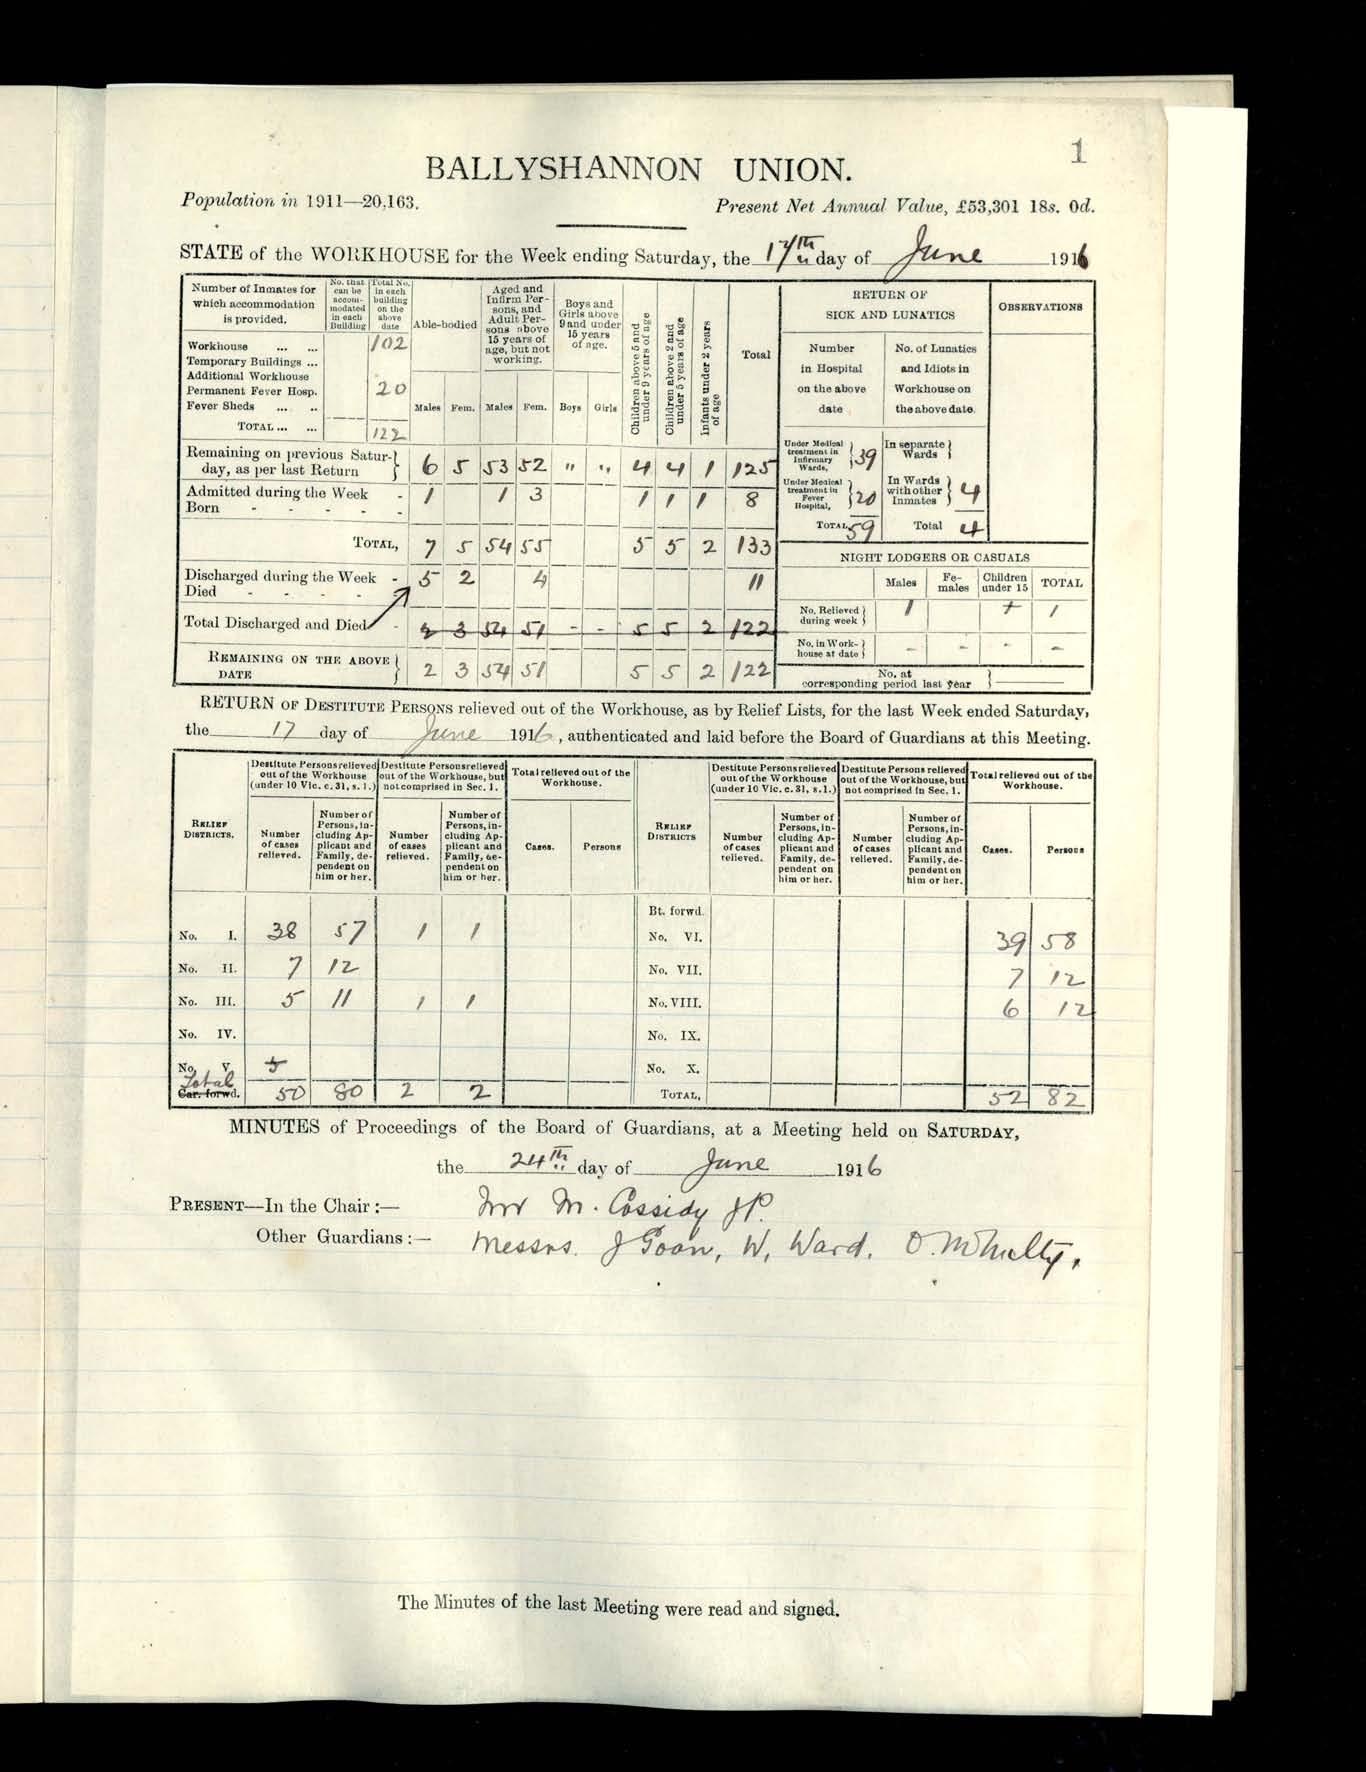 1
BALLYSHANNON UNION.
Population in 1911—20,163.
Present Net Annual Value, £53,301 18s. 0d.
STATE of the WORKHOUSE for the Week ending Saturday, the 17th day of June 1916
Number of Inmates for which accommodation is provided.
No. that can be accommodated in each Building
Total No. in each building on the above date
Able-bodied
Aged and Infirm Persons, and Adult Persons above 15 years of age, but not working.
Boys and Girls above 9 and under 15 years of age.
Children above 5 and under 9 years of age
Children above 2 and under 5 years of age
Infants under 2 years of age
Total
Males Fem. Males Fem. Boys Girls
Workhouse ... ... 102
Temporary Buildings ...
Additional Workhouse
Permanent Fever Hosp. 20
Fever Sheds ... ..
TOTAL ... ... 122
Remaining on previous Saturday, as per last Return 6 5 53 52 " " 4 4 1 125
Admitted during the Week - 1 1 3 1 1 1 8
Born - - - - -
TOTAL, 7 5 54 55 5 5 2 133
Discharged during the Week - 5 2 4 11
Died - - - - -
Total Discharged and Died - 2 3 54 51 - - 5 5 2 122
REMAINING ON THE ABOVE DATE 2 3 54 51 5 5 2 122
RETURN OF SICK AND LUNATICS
OBSERVATIONS
Number in Hospital on the above date
No. of Lunatics and Idiots in Workhouse on the above date.
Under Medical treatment in Infirmary Wards, 39
In separate Wards
Under Medical treatment in Fever Hospital, 20
In Wards with other Inmates 4
TOTAL, 59 Total 4
NIGHT LODGERS OR CASUALS
Males Females Children under 15 TOTAL
No. Relieved during week 1 + 1
No. in Workhouse at date - - - -
No. at corresponding period last year
RETURN OF DESTITUTE PERSONS relieved out of the Workhouse, as by Relief Lists, for the last Week ended Saturday,
the 17 day of June 1916, authenticated and laid before the Board of Guardians at this Meeting.
RELIEF DISTRICTS.
Destitute Persons relieved out of the Workhouse (under 10 Vic. c. 31, s. 1.)
Destitute Persons relieved out of the Workhouse, but not comprised in Sec. 1.
Total relieved out of the Workhouse.
RELIEF DISTRICTS
Destitute Persons relieved out of the Workhouse (under 10 Vic. c. 31, s.1.)
Destitute Persons relieved out of the Workhouse, but not comprised in Sec. 1.
Total relieved out of the Workhouse.
Number of cases relieved.
Number of Persons, including Applicant and Family, dependent on him or her.
Number of cases relieved.
Number of Persons, including Applicant and Family, dependent on him or her.
Cases. Persons
Number of cases relieved.
Number of Persons, including Applicant and Family, dependent on him or her.
Number of cases relieved.
Number of Persons, including Applicant and Family, dependent on him or her.
Cases. Persons
Bt. forwd.
No. I. 38 57 1 1 No. VI. 39 58
No. II. 7 12 No. VII. 7 12
No. III. 5 11 1 1 No. VIII. 6 12
No. IV. No. IX.
No. V. 5 No. X.
Total
Car. forwd. 50 80 2 2 TOTAL, 52 82
MINUTES of Proceedings of the Board of Guardians, at a Meeting held on SATURDAY,
the 24th day of June 1916
PRESENT—In the Chair :— Mr M. Cassidy JP.
Other Guardians :— Messrs. J Goan, W, Ward. O. McNulty.
The Minutes of the last Meeting were read and signed.